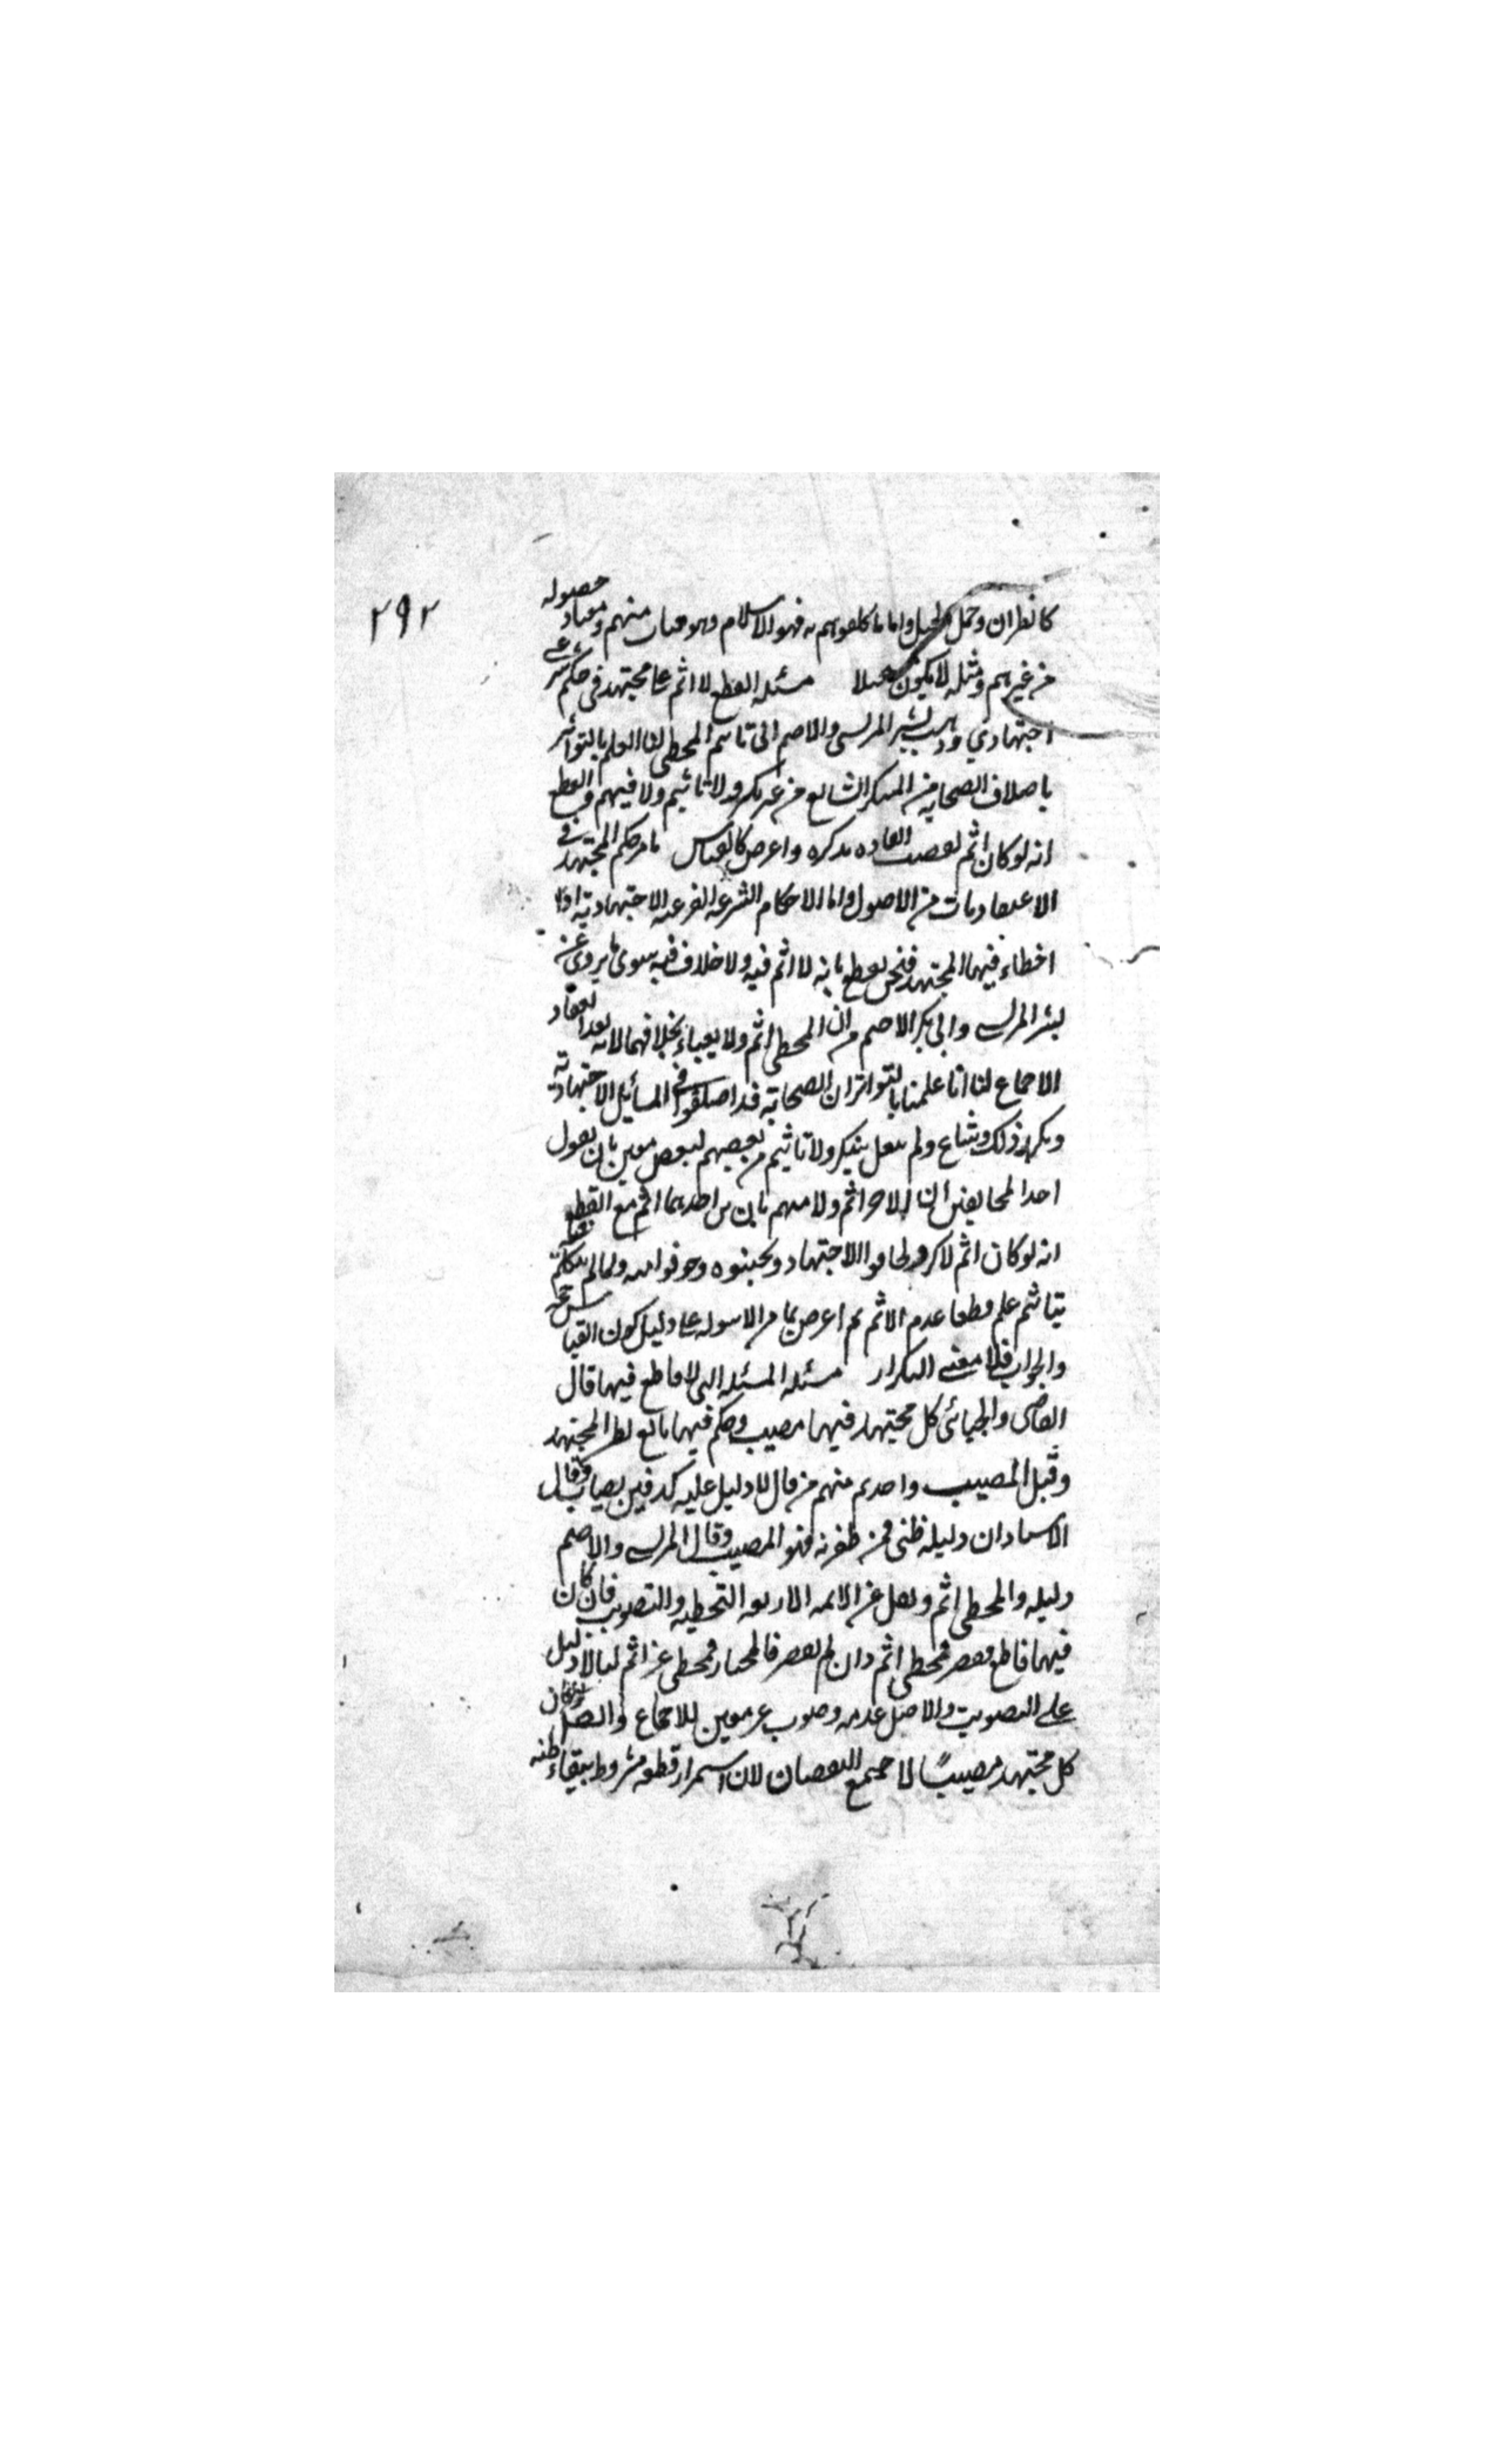 ٢٩٢
كالطيران وحمل الجبل واما ما كلفوهم به فهو الاسلام وهو متات منهم ومعتاد حصوله
من غيرهم ومثله لا يكون مستحيلا مسئله القطع لا اثم على مجتهد في حكم شرعي
اجتهادي وذهب بشر المريسي والاصم الى تاثيم المخطي لنا العلم بالتواتر
باختلاف الصحابه من المتكرر الشايع من غير نكير ولا تاثيم ولا فيهم والقطع
انه لو كان اثم لقضت العاده بذكره واعترض كالقياس ما مر حكم المجتهد في
الاعتقاديات من الاصول واما الاحكام الشرعيه الفرعيه الاجتهادية اذا
اخطاء فيها المجتهد فنحن نقطع بانه لا اثم فيه ولا خلاف فيه سوى ما يروى عن
بشر المريسي وابي بكر الاصم من ان المخطي اثم ولا يعباء بخلافهما لانه بعد انعقاد
الاجماع لنا انا علمنا بالتواتر ان الصحابة قد اختلفوا في المسائيل الاجتهادية
وتكرر ذلك وشاع ولم ينقل نكير ولا تاثيم من بعضهم لبعض معين بان يقول
احد المخالفين ان الاخر اثم ولا مبهم بان من احدهما اثم مع القطع
انه لو كان اثم لذكر ولخافوا الاجتهاد وتجنبوه وخوفوا منه ولما لم يتكلم فيه
بتاثيم علم قطعا عدم الاثم ثم اعترض بما مر الاسوله على دليل كون القياس حجه
والجواب فلا معنى للتكرار مسئله المسئله التي لا قاطع فيها قال
القاضي والجبائي كل مجتهد فيها مصيب وحكم فيها تابع لظن المجتهد
وقيل المصيب واحد ثم منهم من قال لا دليل عليه كدفين يصاب وقال
الاستاد ان دليله ظني فمن ظفر به فهو المصيب وقال المريسي والاصم
دليله والمخطي اثم ونقل عن الائمه الاربعه التخطيه والتصويب فان كان
فيها قاطع فقصر فمخطي اثم وان لم يقصر فالمختار فمخطي غير اثم لنا لا دليل
على التصويب والاصل عدمه وصوب غير معين للاجماع وايضا لو كان
كل مجتهد مصيبًا لاجتمع النقيضان لان استمرار قطعه مشروط ببقاء ظنه